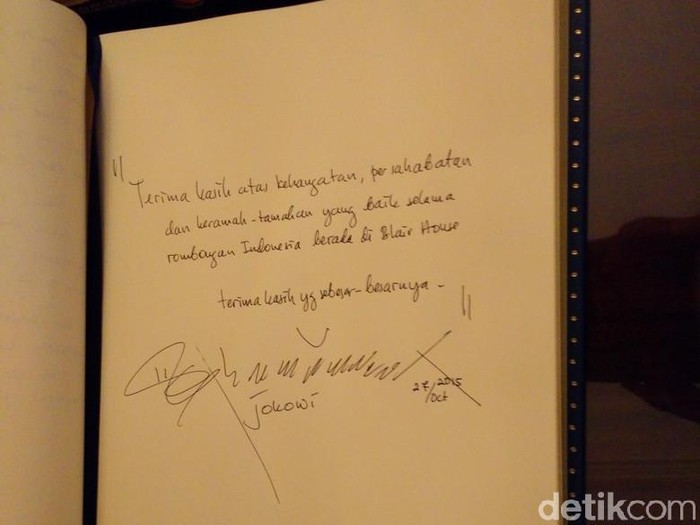 "Terima kasih atas kehangatan, persahabatan
dan keramah-tamahan yang baik selama
rombongan Indonesia berada di Blair House
terima kasih yg sebesar-besarnya -"
Jokowi
27/Oct 2015
detikcom